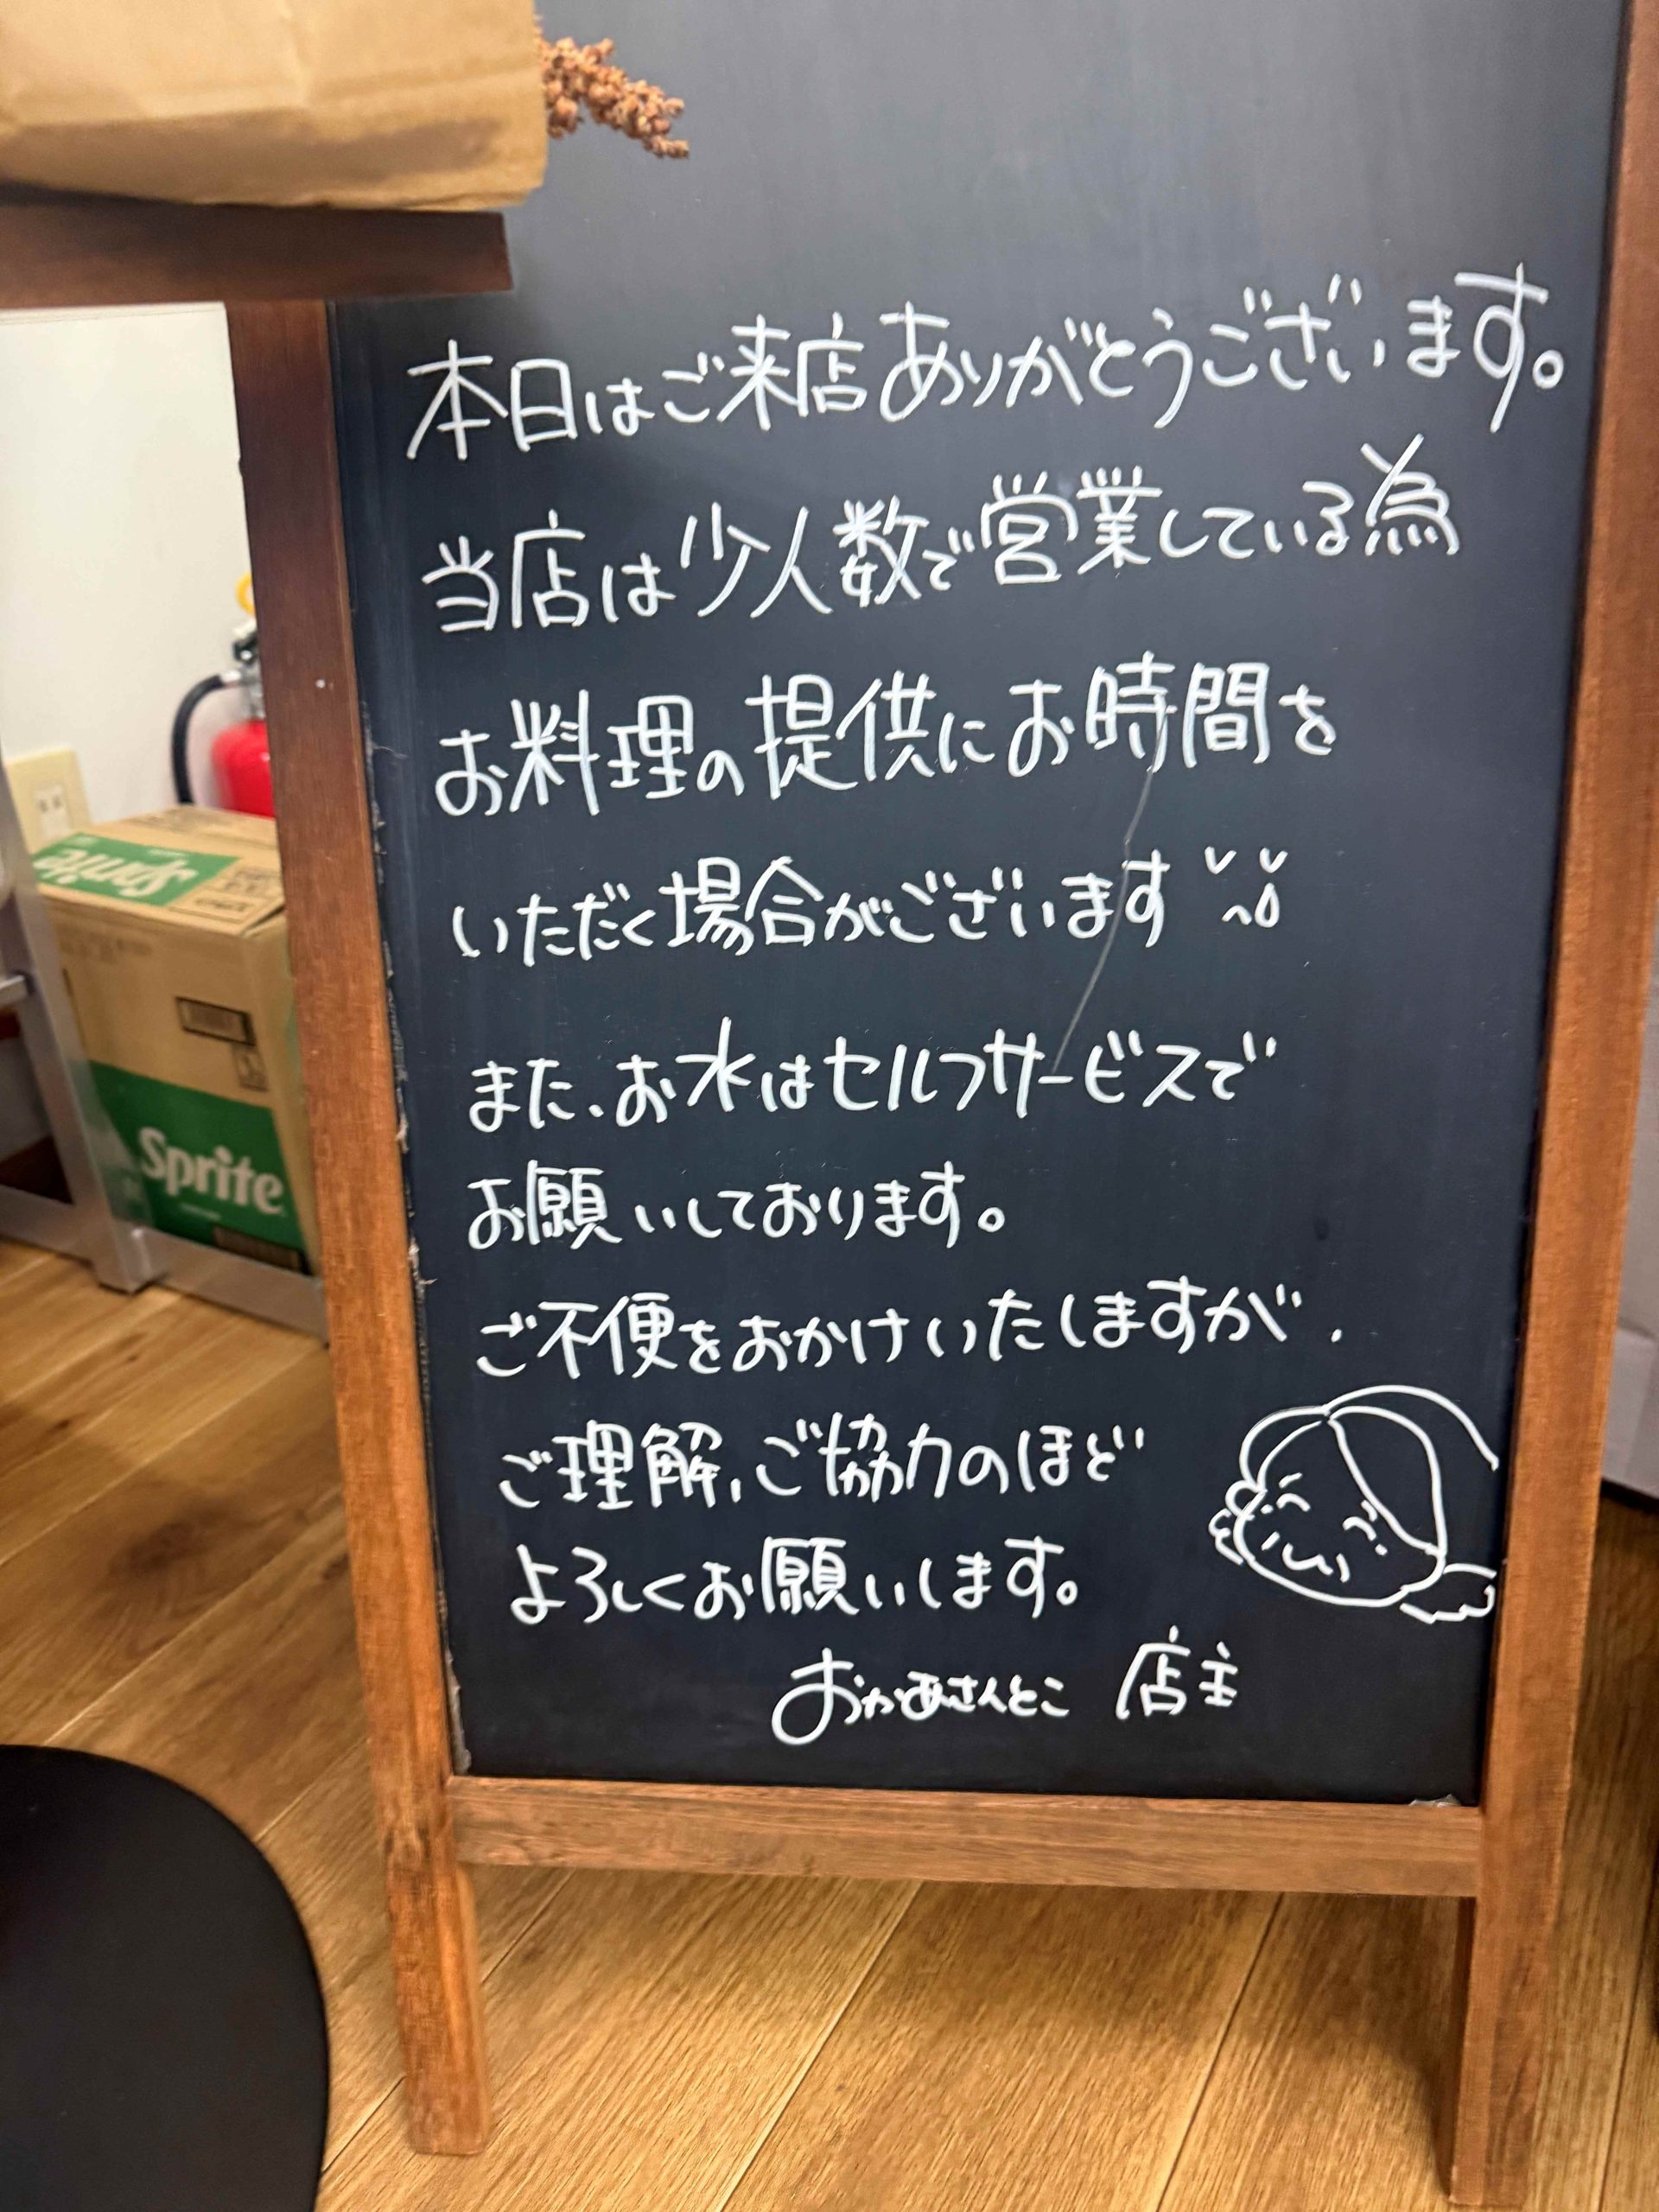 本日はご来店ありがとうございます。
当店は少人数で営業している為
お料理の提供にお時間を
いただく場合がございます
また、お水はセルフサービスで
お願いしております。
ご不便をおかけいたしますが、
ご理解、ご協力のほど
よろしくお願いします。
おかあさんとこ 店主
Sprite
Sprite